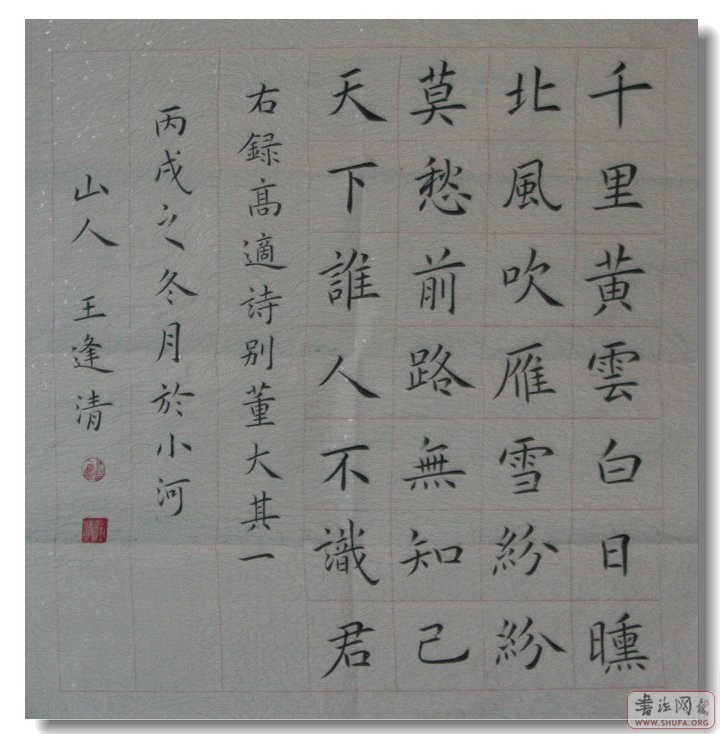 千里黄雲白日曛
北風吹雁雪紛紛
莫愁前路無知己
天下誰人不識君
右録高適詩别董大其一
丙戌之冬月於小河
山人 王逢清
書法网
WWW.SHUFA.ORG